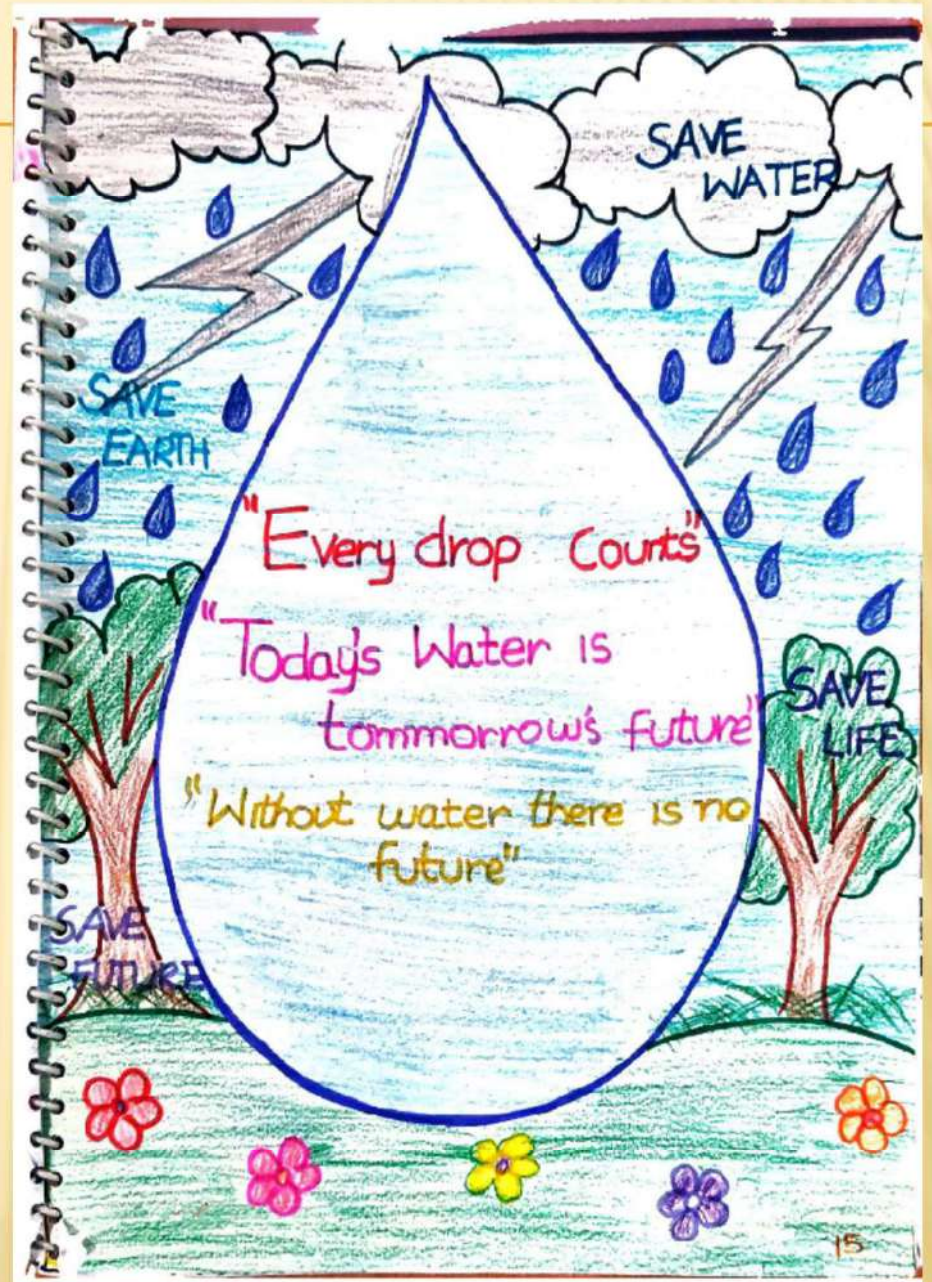 SAVE
WATER
SAVE
EARTH
"Every drop Counts"
"Today's Water is
tommorrow's future"
SAVE
LIFE
"Without water there is no
future"
SAVE
FUTURE
15